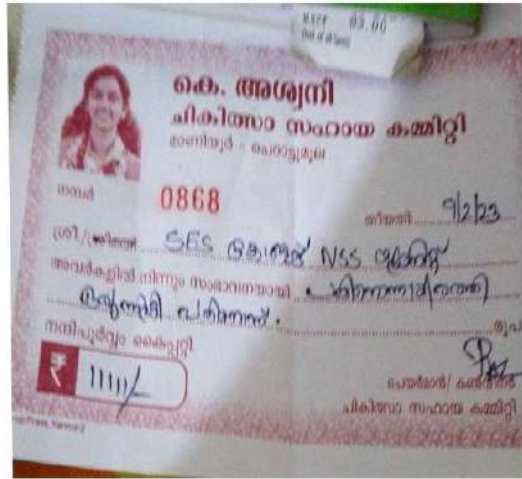 MRP 03.00
കെ. അശ്വനി
ചികിത്സാ സഹായ കമ്മിറ്റി
മാണിയൂർ - ചെറാട്ടുമൂല
നമ്പർ 0868 തീയതി 9/2/23
ശ്രീ/ശ്രീമതി SES കോളേജ് NSS യൂണിറ്റ്
അവർകളിൽ നിന്നും സംഭാവനയായി പതിനൊന്നായിരത്തി
ഒരുന്നൂറ്റി പതിനൊന്ന്. രൂപ
നന്ദിപൂർവ്വം കൈപ്പറ്റി
₹ 11111/-
ചെയർമാൻ/ കൺവീനർ
ചികിത്സാ സഹായ കമ്മിറ്റി